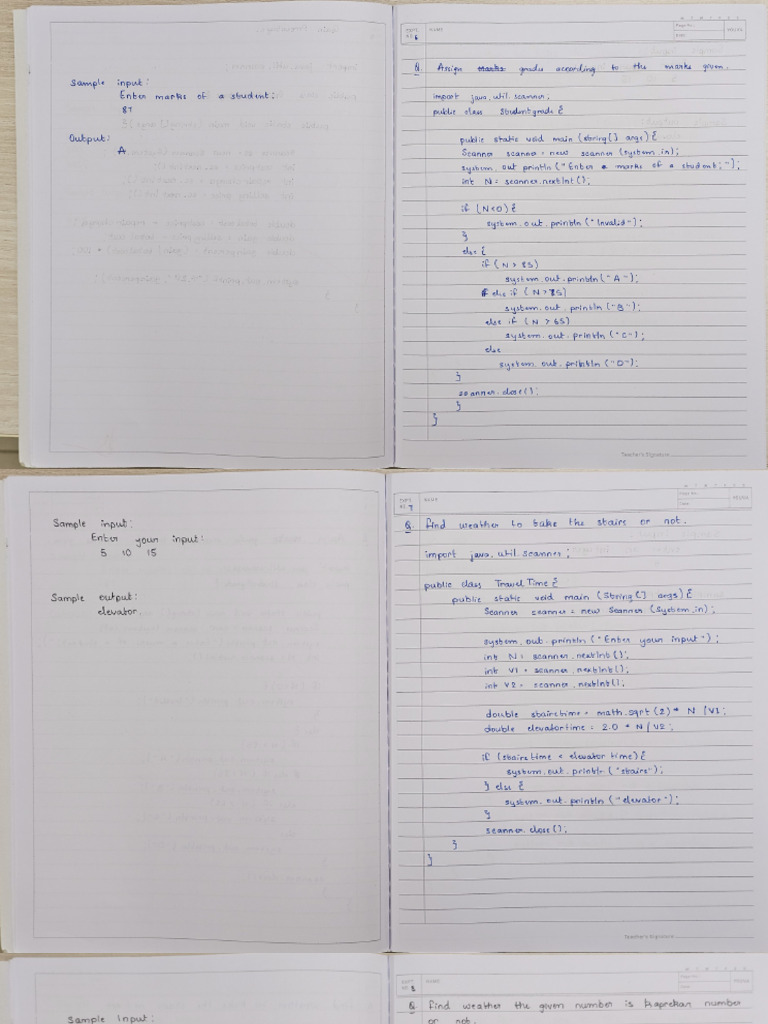 Sample input:
Enter marks of a student:
87
Output:
A
EXPT. NO. 6
NAME
Page No.:
Date:
YOUVA
Q. Assign marks grades according to the marks given.
import java.util.scanner;
public class Studentgrade {
public static void main (string[] args) {
Scanner scanner = new scanner (system.in);
system.out.println ("Enter a marks of a student:");
int N = scanner.nextInt();
if (N<0) {
system.out.println ("Invalid");
}
else {
if (N > 85)
system.out.println ("A");
else if (N > 75)
system.out.println ("B");
else if (N > 65)
system.out.println ("C");
else
system.out.println ("D");
}
scanner.close();
}
}
Teacher's Signature
Sample input:
Enter your input:
5 10 15
Sample output:
elevator.
EXPT. NO. 7
NAME
Page No.:
Date:
YOUVA
Q. Find weather to take the stairs or not.
import java.util scanner;
public class TravelTime {
public static void main (String[] args) {
Scanner scanner = new Scanner (System.in);
system.out.println ("Enter your input");
int N = scanner.nextInt();
int V1 = scanner.nextInt();
int V2 = scanner.nextInt();
double stairstime = math.sqrt (2) * N / V1;
double elevatortime = 2.0 * N / V2;
if (stairstime < elevator time) {
system.out.println ("stairs");
} else {
system.out.println ("elevator");
}
scanner.close();
}
}
Teacher's Signature
Sample Input:
EXPT. NO. 8
NAME
Page No.:
Date:
YOUVA
Q. Find weather the given number is Kaprekar number
or not.